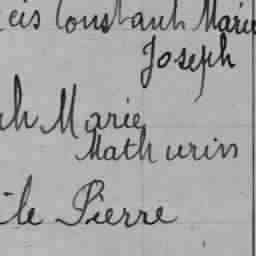 cis Constant Marie
Joseph
h Marie
Mathurin
ile Pierre